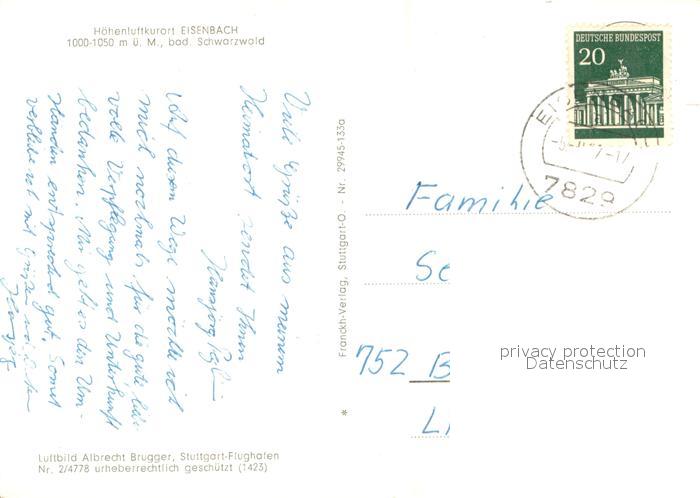 Höhenluftkurort EISENBACH
1000-1050 m ü. M., bad. Schwarzwald
Viele Grüße aus meinem
Heimatort sendet Ihnen
Hansjörg
Auf diesem Wege möchte ich
mich nochmals für die gute liebe-
volle Verpflegung und Unterkunft
bedanken. Mir geht es den Um-
ständen entsprechend gut. Somit
verbleibe ich mit Grüßen
Hansjörg
Luftbild Albrecht Brugger, Stuttgart-Flughafen
Nr. 2/4778 urheberrechtlich geschützt (1423)
Franckh-Verlag, Stuttgart-O. - Nr. 29945-133a
*
DEUTSCHE BUNDESPOST
20
7829
Familie
Se
752 B
privacy protection
Datenschutz